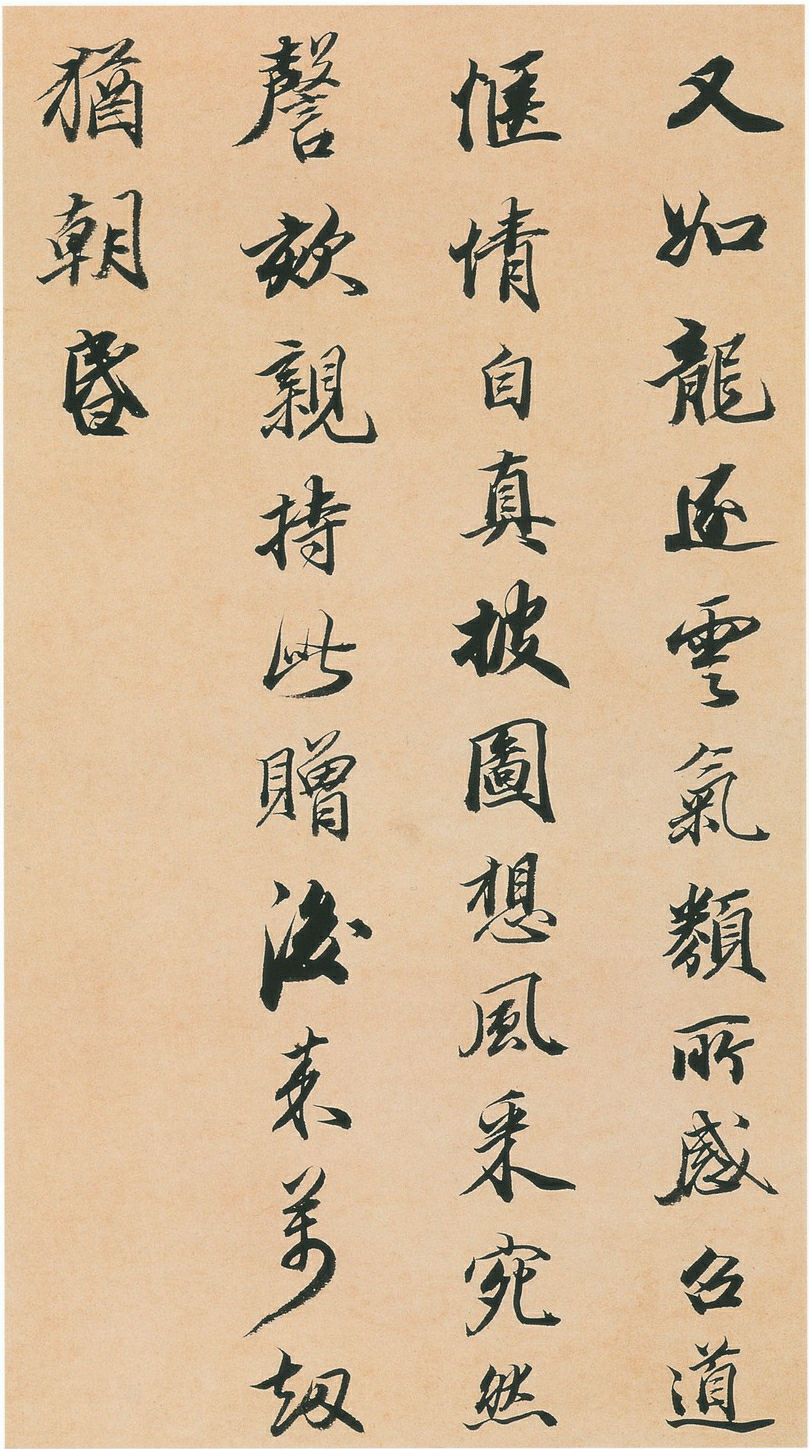 又如龍逐雲氣類所感召道
愜情自真披圖想風采宛然
謦欬親持此贈後来萬劫
猶朝昏